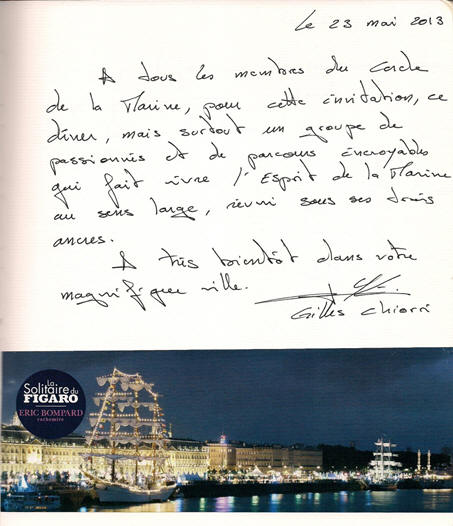 Le 23 mai 2013
A tous les membres du Cercle
de la Marine, pour cette invitation, ce
dîner, mais surtout un groupe de
passionnés et de parcours incroyables
qui fait vivre l'Esprit de la Marine
au sens large, réuni sous ses trois
ancres.
A très bientôt dans votre
magnifique ville.
Gilles Chiorri
La
Solitaire du
FIGARO
ERIC BOMPARD
cachemire